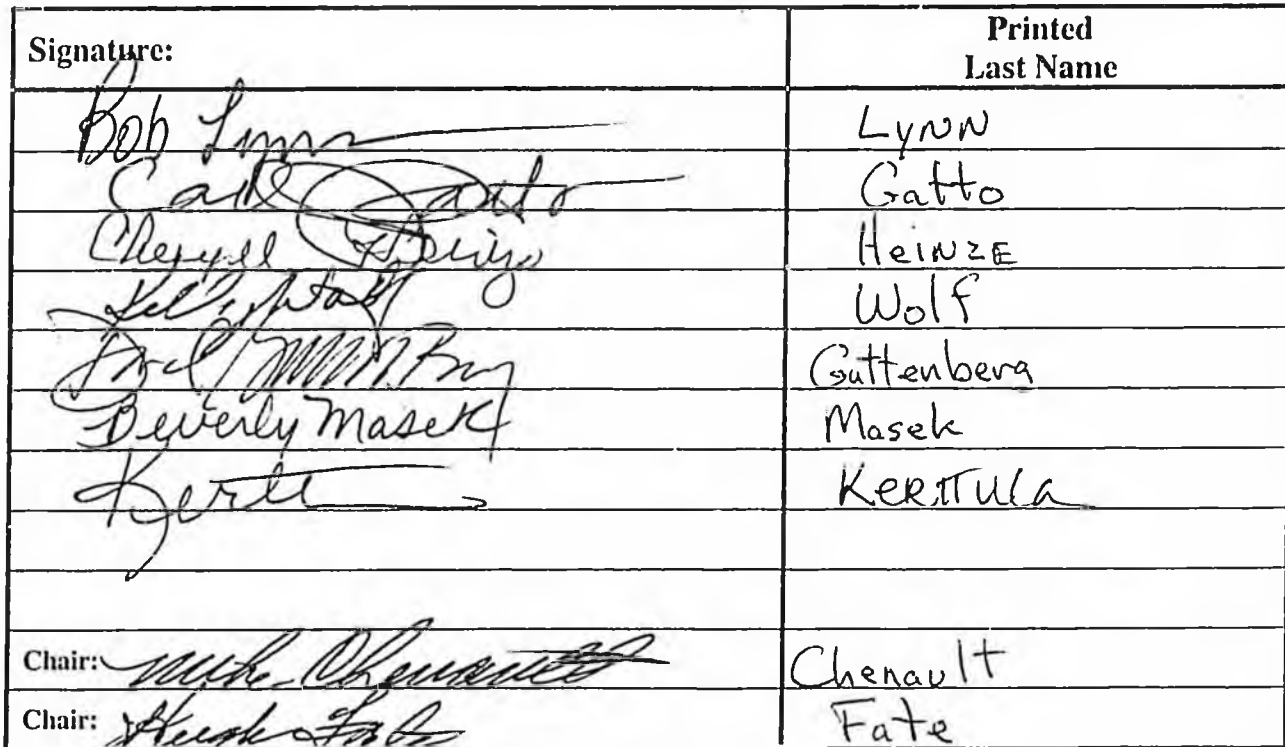 Signature: Printed
Last Name
Bob Lynn Lynn
Carl Gatto Gatto
Cheryll Heinze Heinze
Kelly Wolf Wolf
Guttenberg
Beverly Masek Masek
Kertt KERTTULA
Chair: Mike Chenault Chenault
Chair: Hugh Fate Fate